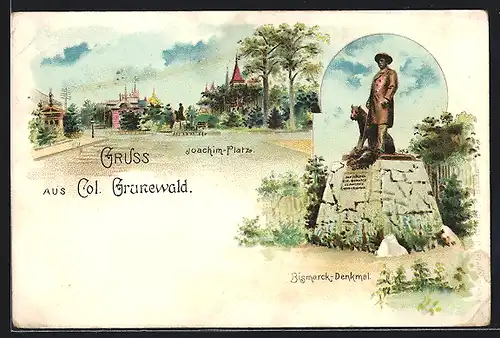 Joachim-Platz.
GRUSS
AUS Col. Grunewald.
Bismarck-Denkmal.